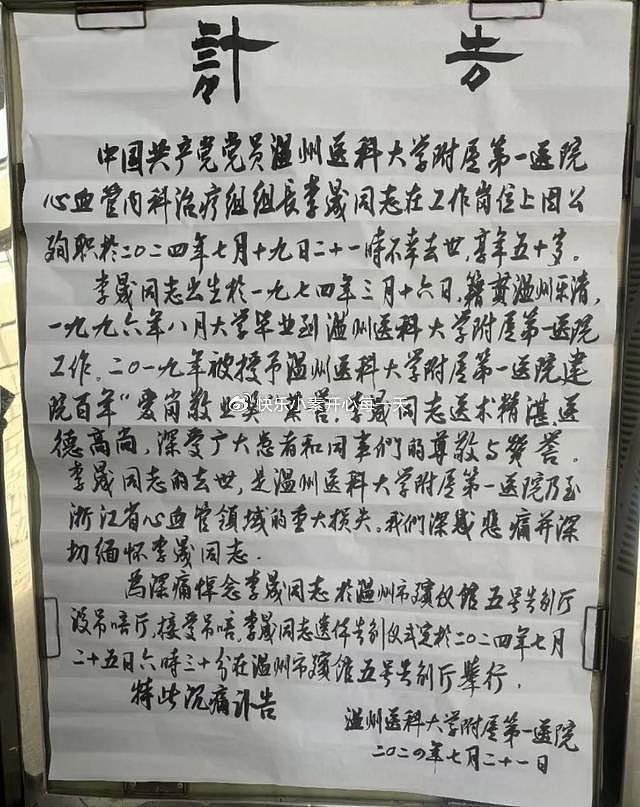 訃 告
中国共产党党员温州医科大学附属第一医院
心血管内科治疗组组长李晟同志在工作岗位上因公
殉职於二〇二四年七月十九日二十一時不幸去世，享年五十岁。
李晟同志出生於一九七四年三月十六日，籍贯温州乐清，
一九九六年八月大学毕业到温州医科大学附属第一医院
工作。二〇一九年被授予温州医科大学附属第一医院建
院百年“爱岗敬业奖”荣誉。李晟同志医术精湛，医
德高尚，深受广大患者和同事们的尊敬与赞誉。
李晟同志的去世，是温州医科大学附属第一医院乃至
浙江省心血管领域的重大损失。我们深感悲痛并深
切缅怀李晟同志．
為深痛悼念李晟同志於温州市殡仪馆五号告别厅
设吊唁厅，接受吊唁，李晟同志遗体告别仪式定於二〇二四年七月
二十五日六時三十分在温州市殡馆五号告别厅舉行．
特此沉痛讣告
温州医科大学附属第一医院
二〇二四年七月二十一日
快乐小素开心每一天